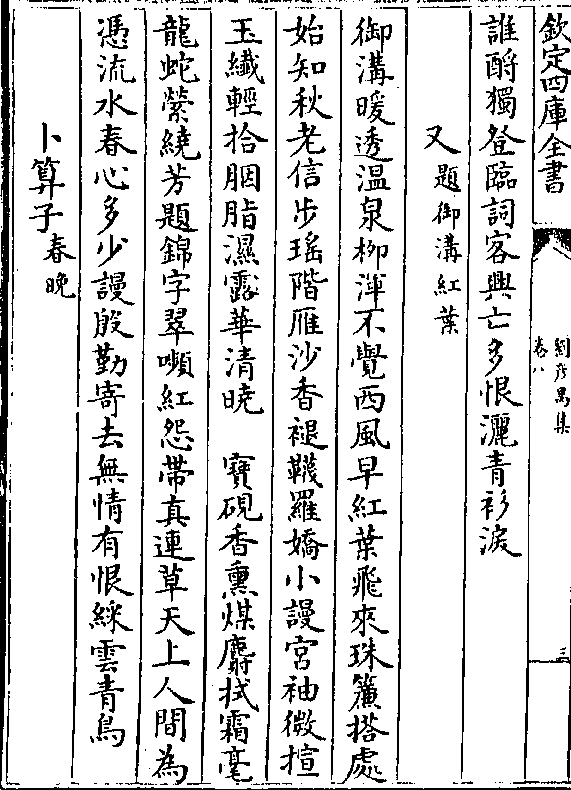 欽定四庫全書
劉彥昺集
卷八
三
誰酹獨登臨詞客興亡多恨灑青衫淚
又題御溝紅葉
御溝暖透溫泉柳渾不覺西風早紅葉飛來珠簾搭處
始知秋老信步瑤階雁沙香褪韈羅嬌小謾宮袖微揎
玉纖輕拾胭脂濕露華清曉　寶硯香熏煤麝拭霜毫
龍蛇縈繞芳題錦字翠嚬紅怨帶真連草天上人間為
憑流水春心多少謾殷勤寄去無情有恨綵雲青鳥
卜算子春晚